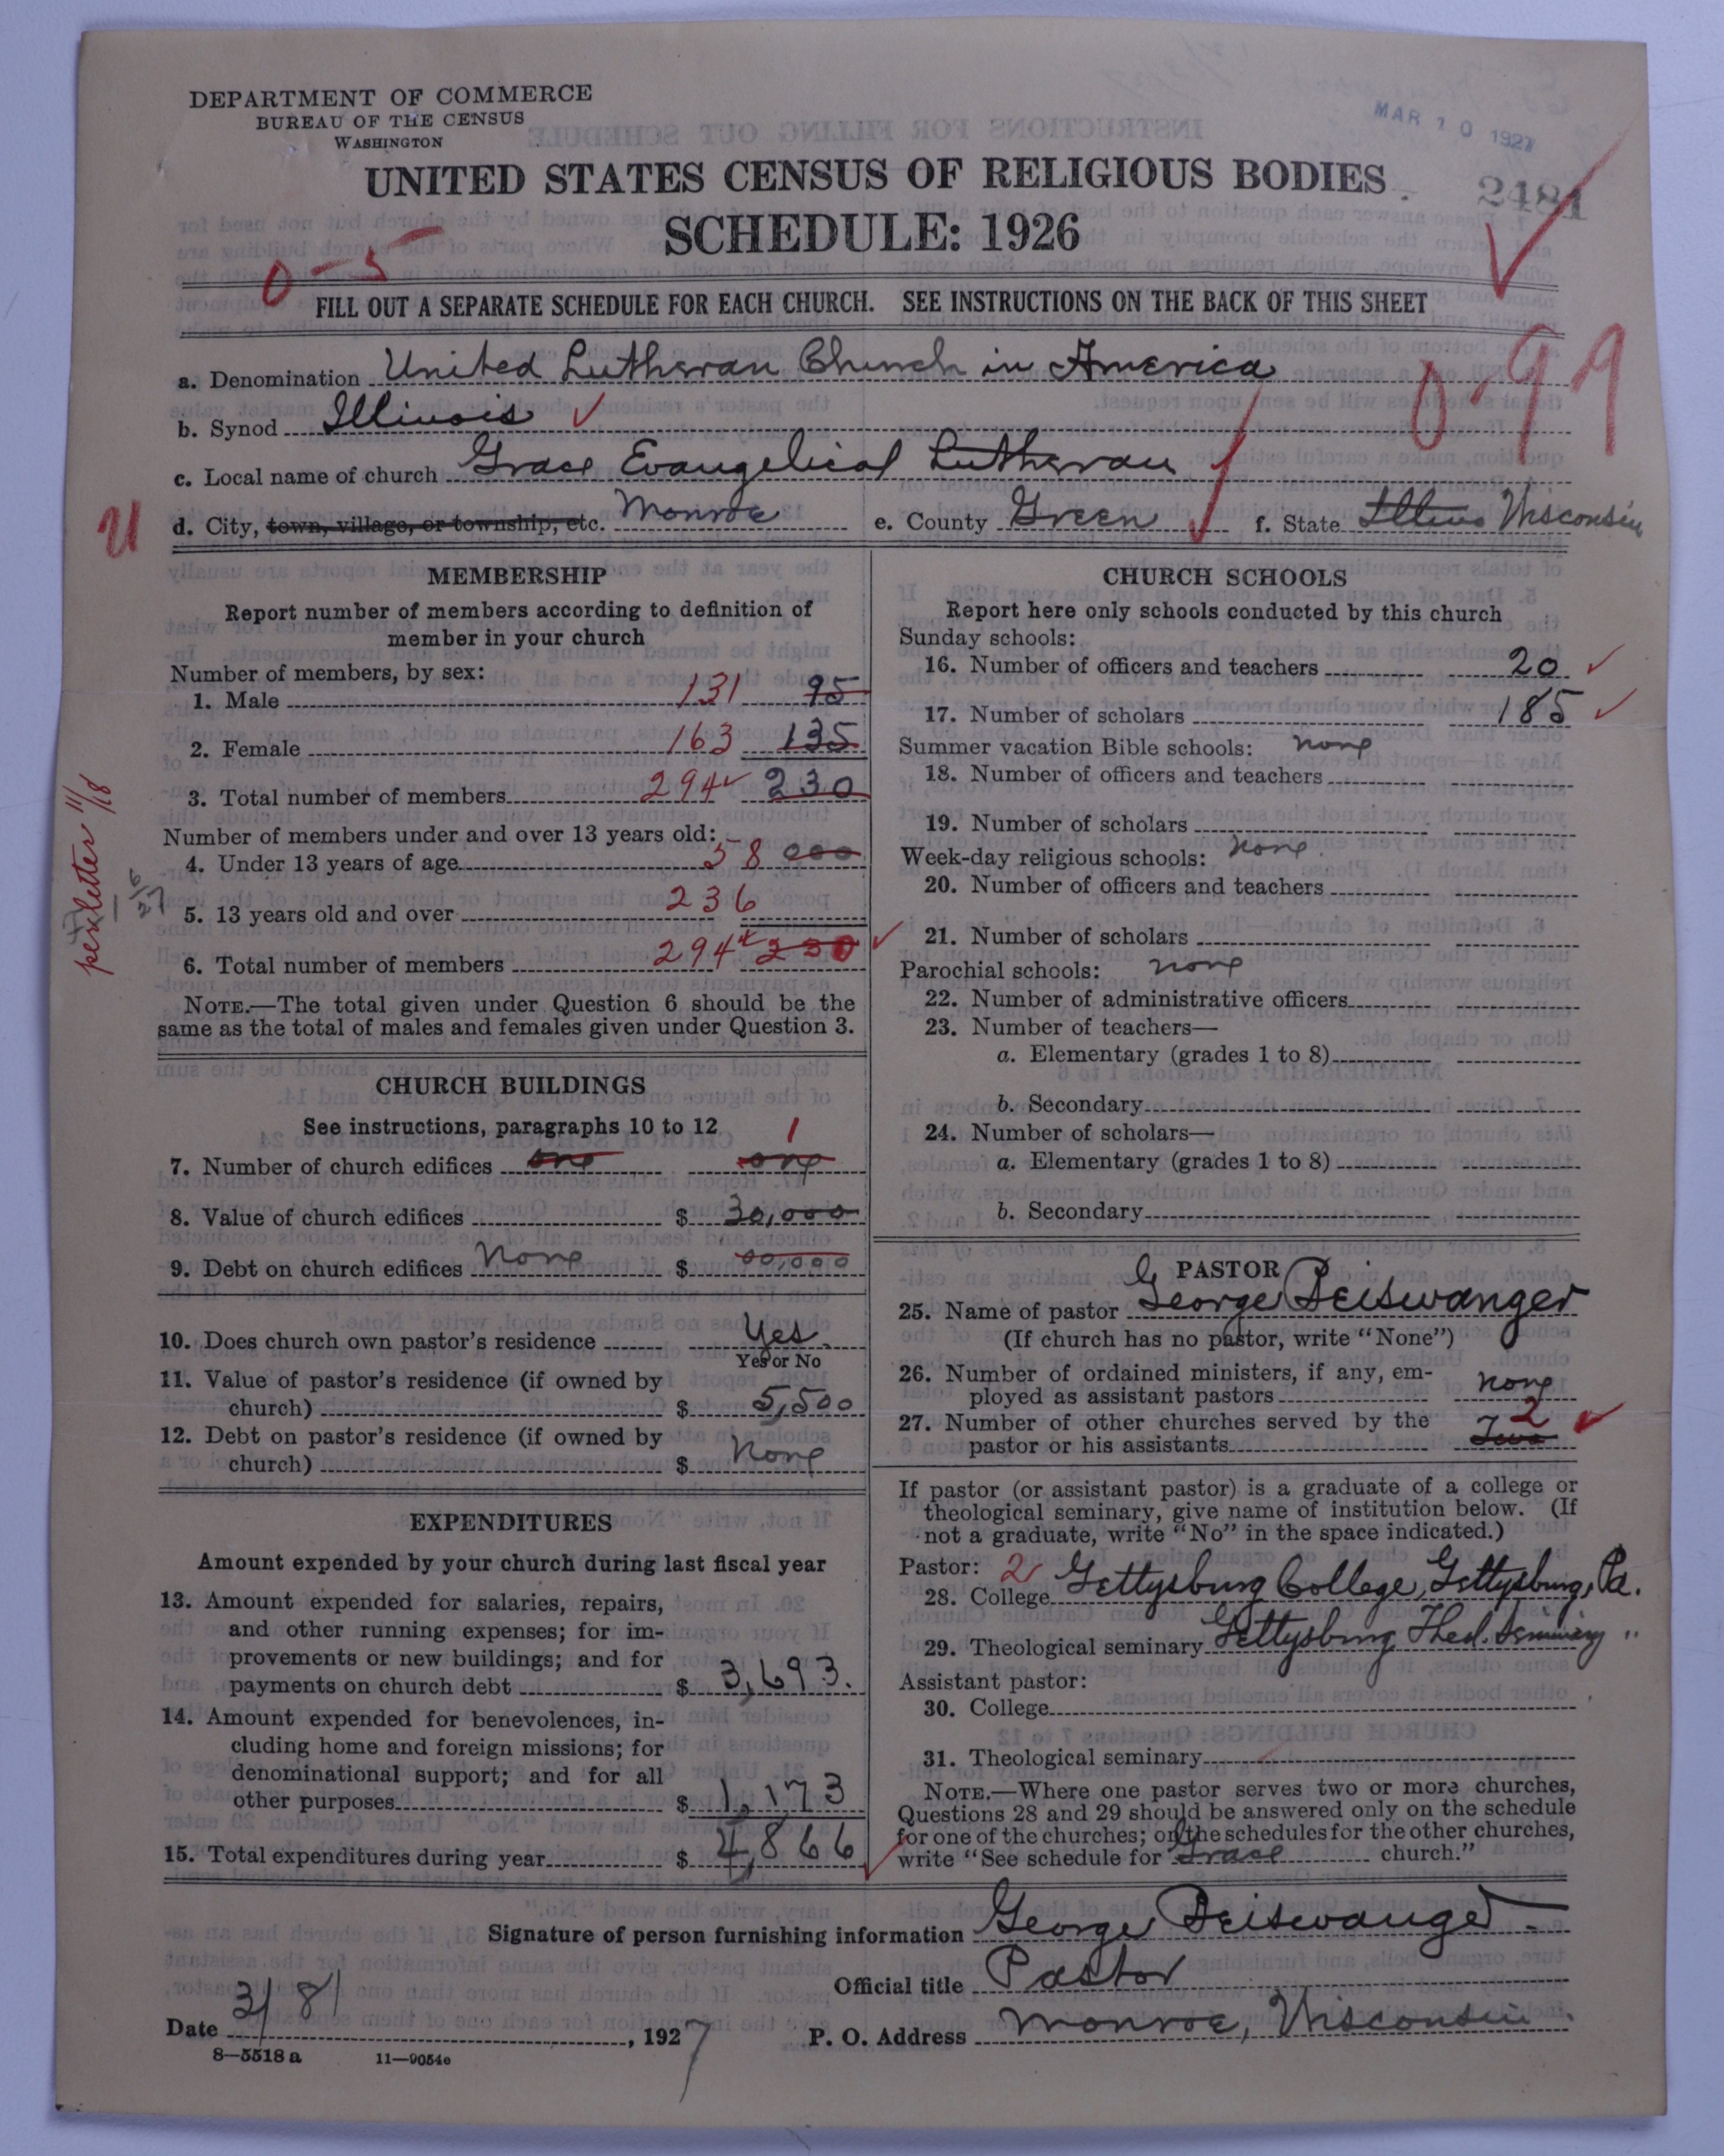 DEPARTMENT OF COMMERCE
BUREAU OF THE CENSUS
WASHINGTON
MAR 10 1927
UNITED STATES CENSUS OF RELIGIOUS BODIES
2481
SCHEDULE: 1926
0-5
FILL OUT A SEPARATE SCHEDULE FOR EACH CHURCH. SEE INSTRUCTIONS ON THE BACK OF THIS SHEET
0-99
a. Denomination United Lutheran Church in America
b. Synod Illinois
c. Local name of church Grace Evangelical Lutheran
U
d. City, town, village, or township, etc. Monroe e. County Green f. State Illinois Wisconsin
MEMBERSHIP
Report number of members according to definition of
member in your church
Number of members, by sex:
1. Male 131 95
2. Female 163 135
3. Total number of members 294 230
Number of members under and over 13 years old:
4. Under 13 years of age 58 000
5. 13 years old and over 236
6. Total number of members 294 230
per letter 11/18
NOTE.—The total given under Question 6 should be the
same as the total of males and females given under Question 3.
CHURCH BUILDINGS
See instructions, paragraphs 10 to 12
1
7. Number of church edifices one one
8. Value of church edifices $ 30,000
9. Debt on church edifices None $ 00,000
10. Does church own pastor's residence Yes
Yes or No
11. Value of pastor's residence (if owned by
church) $ 5,500
12. Debt on pastor's residence (if owned by
church) $ None
EXPENDITURES
Amount expended by your church during last fiscal year
13. Amount expended for salaries, repairs,
and other running expenses; for im-
provements or new buildings; and for
payments on church debt $ 3,693.
14. Amount expended for benevolences, in-
cluding home and foreign missions; for
denominational support; and for all
other purposes $ 1,173
15. Total expenditures during year $ 4,866
CHURCH SCHOOLS
Report here only schools conducted by this church
Sunday schools:
16. Number of officers and teachers 20
17. Number of scholars 185
Summer vacation Bible schools: none
18. Number of officers and teachers
19. Number of scholars
Week-day religious schools: none
20. Number of officers and teachers
21. Number of scholars
Parochial schools: none
22. Number of administrative officers
23. Number of teachers—
a. Elementary (grades 1 to 8)
b. Secondary
24. Number of scholars—
a. Elementary (grades 1 to 8)
b. Secondary
PASTOR
25. Name of pastor George Beiswanger
(If church has no pastor, write "None")
26. Number of ordained ministers, if any, em-
ployed as assistant pastors none
27. Number of other churches served by the
pastor or his assistants Two 2
If pastor (or assistant pastor) is a graduate of a college or
theological seminary, give name of institution below. (If
not a graduate, write "No" in the space indicated.)
Pastor: 2
28. College Gettysburg College, Gettysburg, Pa.
29. Theological seminary Gettysburg Theol. Seminary "
Assistant pastor:
30. College
31. Theological seminary
NOTE.—Where one pastor serves two or more churches,
Questions 28 and 29 should be answered only on the schedule
for one of the churches; on the schedules for the other churches,
write "See schedule for Grace church."
Signature of person furnishing information George Beiswanger
Official title Pastor
Date 3/8/, 1927 P. O. Address Monroe, Wisconsin
8—5518 a 11—9054e